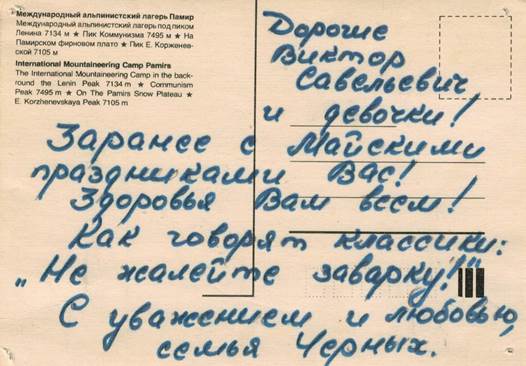 Международный альпинистский лагерь Памир
Международный альпинистский лагерь под пиком
Ленина 7134 м ★ Пик Коммунизма 7495 м ★ На
Памирском фирновом плато ★ Пик Е. Корженев-
ской 7105 м
International Mountaineering Camp Pamirs
The International Mountaineering Camp in the back-
round the Lenin Peak 7134 m ★ Communism
Peak 7495 m ★ On The Pamirs Snow Plateau ★
E. Korzhenevskaya Peak 7105 m
Дорогие
Виктор
Савельевич
и девочки!
Заранее с Майскими
праздниками Вас!
Здоровья Вам всем!
Как говорят классики:
„Не жалейте заварку!!"
С уважением и любовью,
семья Черных.